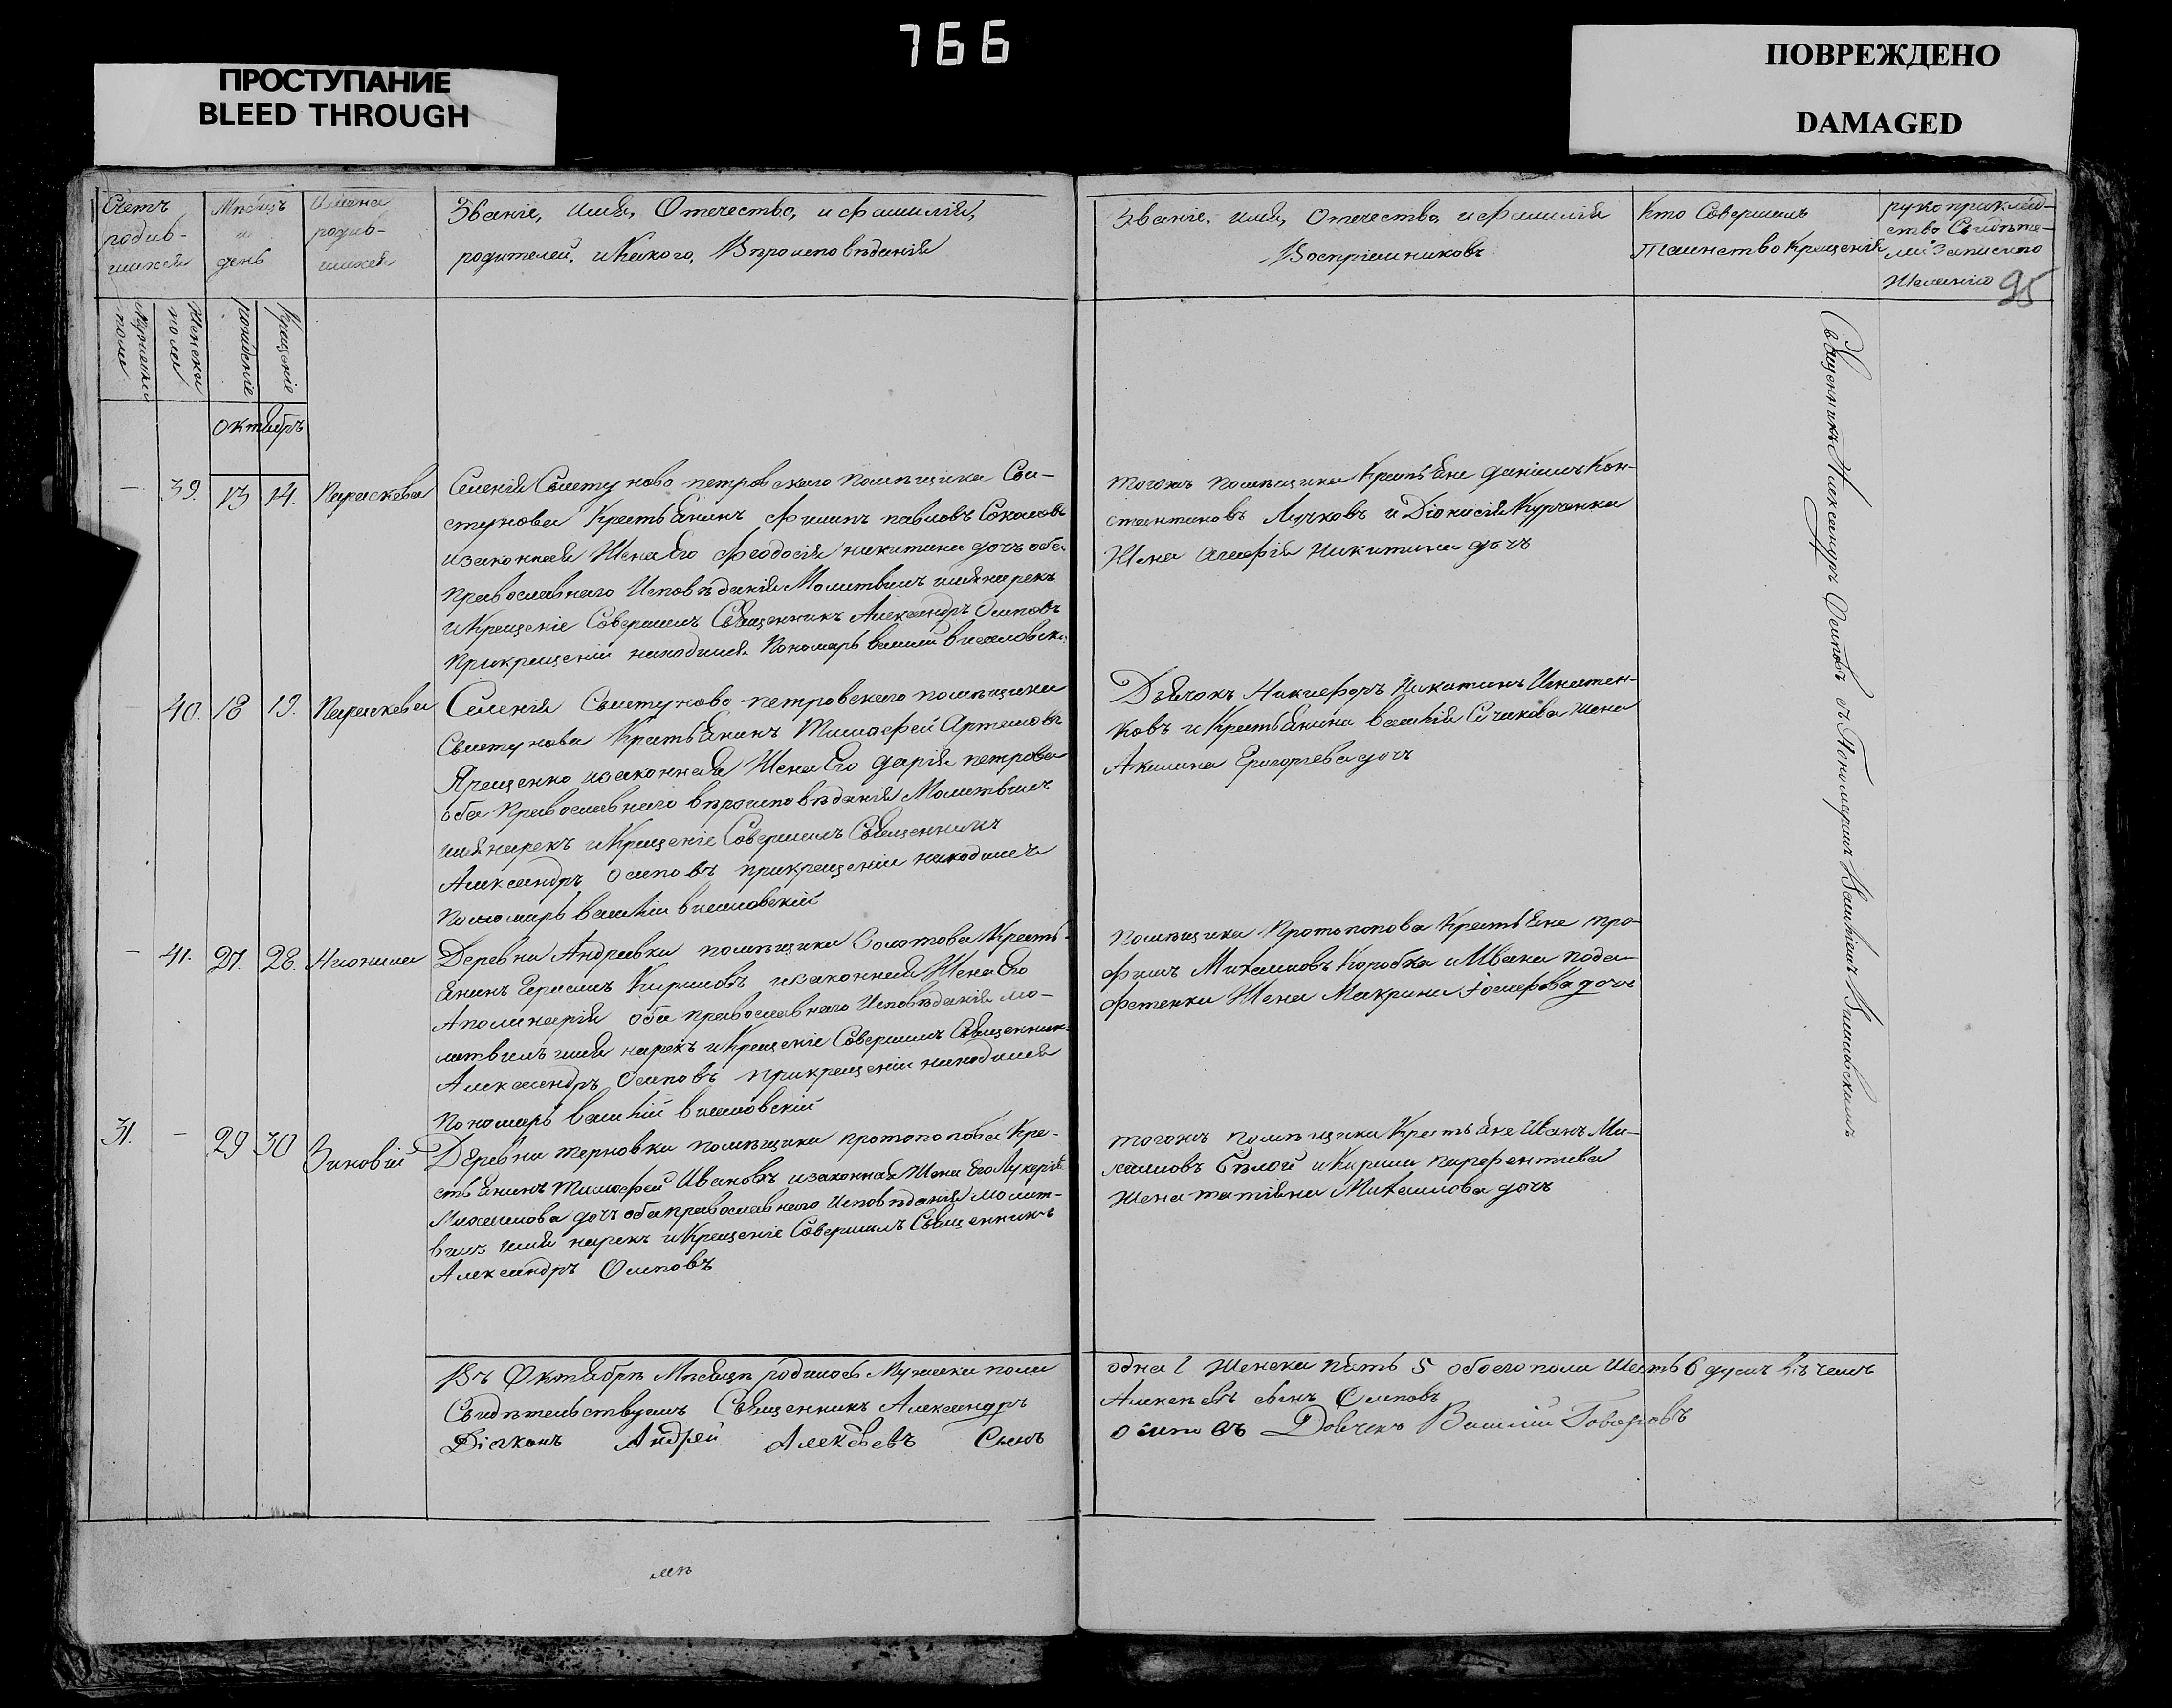 766
ПРОСТУПАНИЕ
BLEED THROUGH
ПОВРЕЖДЕНО
DAMAGED
Счетъ
родив-
шихся
Мѣсяцъ
и
день
Имена
родив-
шихся
Званіе, имя, Отечество, и фамилія,
родителей, и Какого, Вѣроисповѣданія
Званіе, имя, Отечество, и фамилія
Воспріемниковъ
Кто Совершалъ
таинство Крещенія
рукоприклад-
ство Свидѣте-
лей записи по
Желанію
95
Мужеска
пола
Женска
пола
рожденіе
Крещеніе
октябрь
— 39. 13 14. Параскева
Селенія Свистуново петровскаго помѣщика Сви-
стунова Крестьянинъ Филипъ павловъ Соколовъ
изаконная Жена Его Феодосія никитина дочь оба
православнаго Исповѣданія Молитвилъ имя нарекъ
и Крещеніе Совершилъ Священникъ Александръ Осиповъ
Прикрещеніи находился Пономарь васили висиловск.
тогожъ помѣщика Крестьяне даніилъ Кон-
стантиновъ Лучковъ и Діонисія Курченка
Жена агафія Никитина дочь
— 40. 18 19. Параскева
Селенія Свистуново-петровскаго помѣщика
Свистунова Крестьянинъ Тимофей Артемовъ
Ярещенко изаконная Жена Его дарія петрова
оба Православнаго вѣроисповѣданія Молитвилъ
имя нарекъ и Крещеніе Совершилъ Священникъ
Александръ Осиповъ прикрещеніи находился
Пономарь васілій висиловскій
Дьячокъ Никифоръ Никитинъ Игнатен-
ковъ и Крестьянина васілія Сичкова жена
Акилина Григорьева дочь
— 41. 27. 28. Нионила
Деревни Андреевки помѣщика Золотова Кресть-
янинъ Герасимъ Кириловъ изаконная Жена Его
Аполинарія оба православнаго Исповѣданія мо-
литвилъ имя нарекъ и Крещеніе Совершилъ Священник-
Александръ Осиповъ прикрещеніи находился
Пономарь васілій висиловскій
помѣщика Протопопова Крестьяне тро-
фимъ Михаиловъ Коробка и Ивана пода-
фетенки Жена Макрина Іосифова дочь
31. — 29 30 Зиновій
Деревни терновки помѣщика протопопова Кре-
стьянинъ Тимофей Ивановъ изаконная Жена Его Лукерія
Михаилова дочь оба православнаго Исповѣданія молит-
вилъ имя нарекъ и Крещеніе Совершилъ Священникъ
Александръ Осиповъ
тогожъ помѣщика Крестьяне Иванъ Ми-
хаиловъ Бѣлой и Кирила парфентиева
жена татіяна Михаилова дочь
Священникъ Александръ Осиповъ съ Пономаремъ Василіемъ Висиловскимъ
Въ Октябрѣ Мѣсяцѣ родилось Мужеска пола
одна 1 Женска пять 5 обоего пола Шесть 6 душъ въ чемъ
Свидѣтельствуемъ Священникъ Александръ
Алексѣевъ сынъ Осиповъ
Діаконъ Андрей Алексѣевъ Сынъ
осиповъ Дьячекъ Василій Говоровъ
мѣ